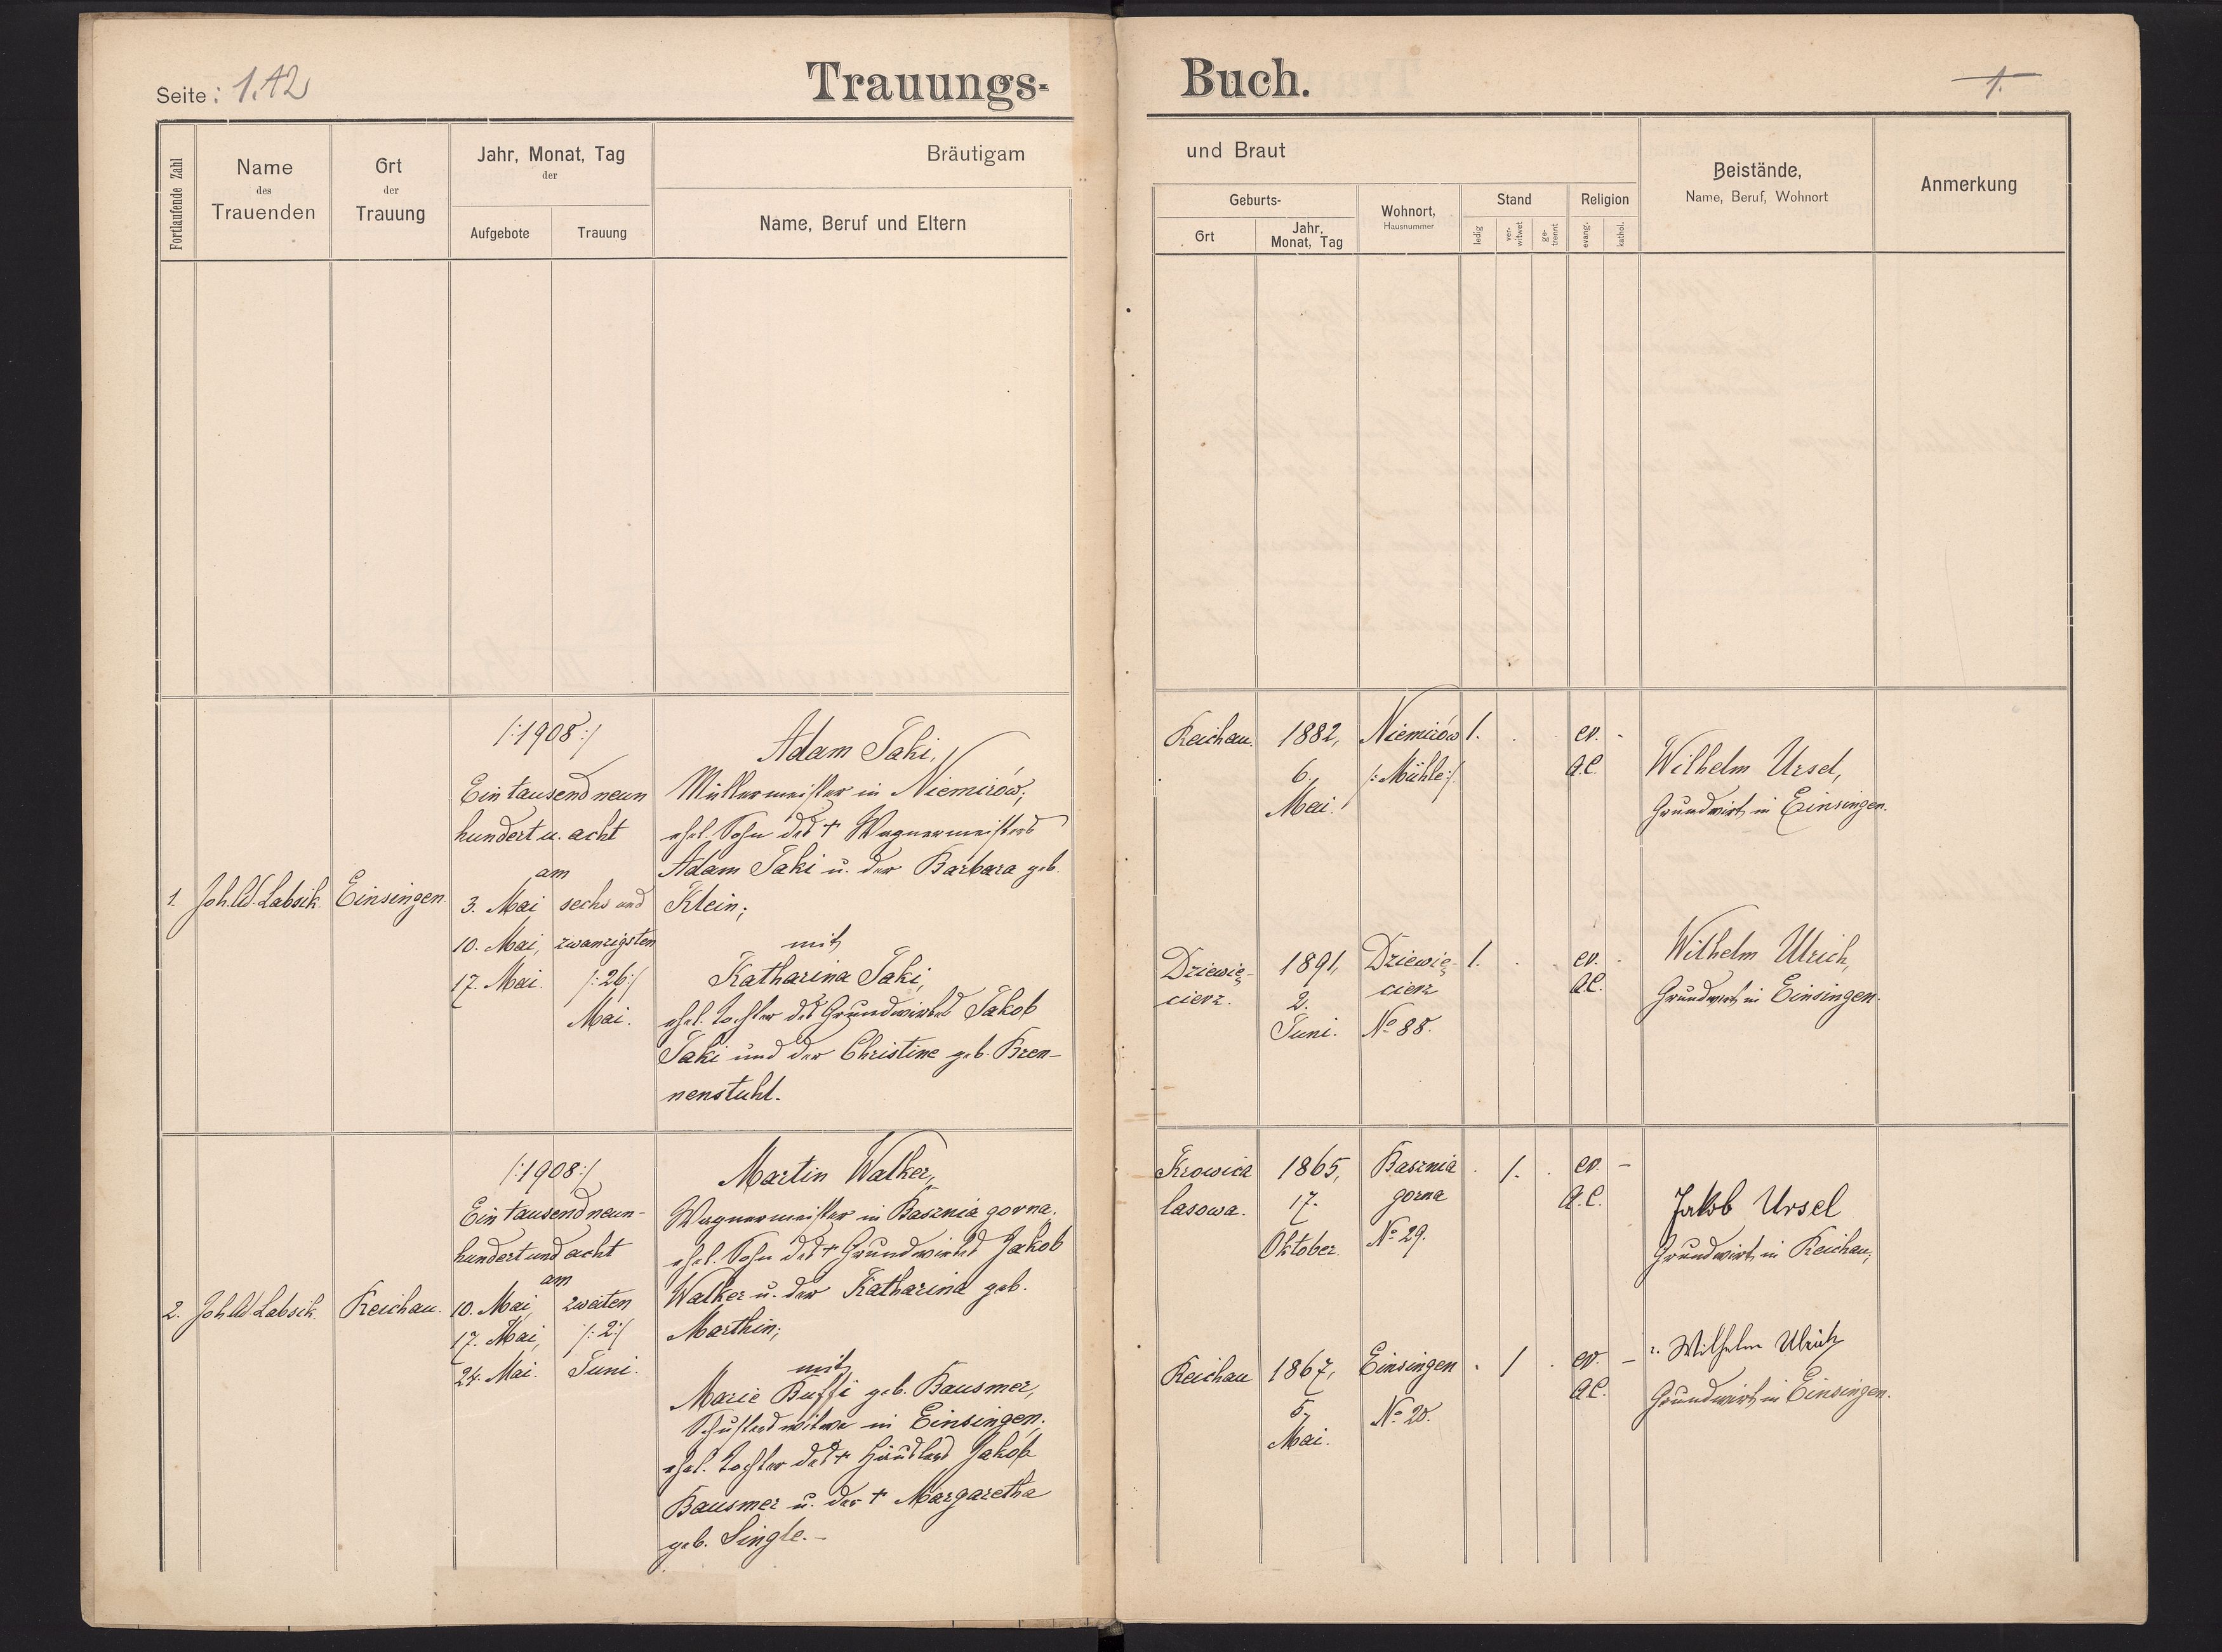 Seite: 1.A2
Trauungs-
Buch.
1.
Fortlaufende Zahl
Name
des
Trauenden
Ort
der
Trauung
Jahr, Monat, Tag
der
Aufgebote
Trauung
Bräutigam
Name, Beruf und Eltern
und Braut
Geburts-
Ort
Jahr,
Monat, Tag
Wohnort,
Hausnummer
Stand
ledig
ver-
witwet
ge-
trennt
Religion
evang.
kathol.
Beistände,
Name, Beruf, Wohnort
Anmerkung
1.
Labsik
Einsingen
/:1908:/
Ein tausend neun
hundert u. acht
am
3. Mai
10. Mai,
17. Mai.
sechs und
zwanzigsten
/:26:/
Mai.
Adam Jaki,
Müllermeister in Niemirów,
ehel. Sohn des † Wagnermeisters
Adam Jaki u. der Barbara geb.
Klein;
mit
Katharina Jaki,
ehel. Tochter des Grundwirtes Jakob
Jaki und der Christine geb. Bren-
nenstuhl.
Reichau.
1882,
6.
Mai.
Niemirów
/:Mühle:/
1.
ev.
A.C.
Wilhelm Ursel,
Grundwirt in Einsingen.
Dziewię-
cierz.
1891,
2.
Juni.
Dziewię-
cierz
No 88.
1.
ev.
A.C.
Wilhelm Ulrich,
Grundwirt in Einsingen.
2.
Labsik
Reichau.
/:1908:/
Ein tausend neun-
hundert und acht
am
10. Mai,
17. Mai,
24. Mai.
zweiten
/:2:/
Juni.
Martin Walker,
Wagnermeister in Basznia gorna.
ehel. Sohn des † Grundwirtes Jakob
Walker u. der Katharina geb.
Marthin;
mit
Marie Buffi geb. Bausmer,
Schusterswitwe in Einsingen,
ehel. Tochter des † Häuslers Jakob
Bausmer u. der † Margaretha
geb. Single.-
Krowica
lasowa.
1865,
17.
Oktober.
Basznia
gorna
No 29.
1.
ev. -
A.C.
Jakob Ursel
Grundwirt in Reichau,
Reichau
1867,
5.
Mai.
Einsingen
No 20.
1
ev. -
A.C.
Wilhelm Ulrich
Grundwirt in Einsingen.